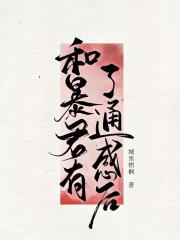 和暴君有
了通感后
城里梧桐 著